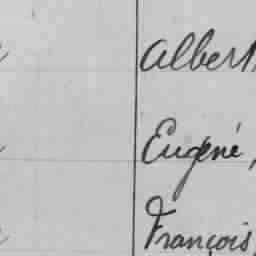 Albert,
Eugéné,
François,